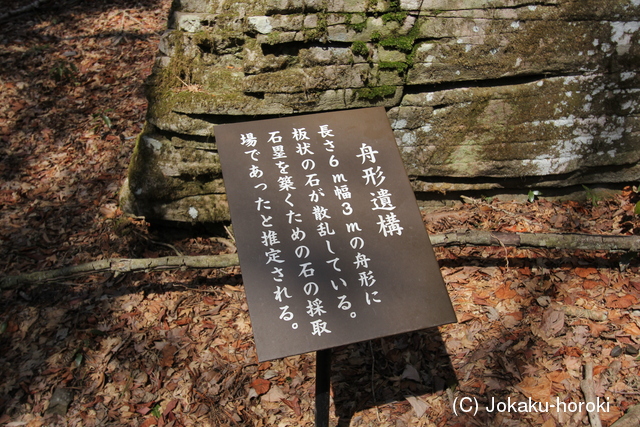 舟形遺構
長さ6m幅3mの舟形に
板状の石が散乱している。
石塁を築くための石の採取
場であったと推定される。
(C) Jokaku-horoki